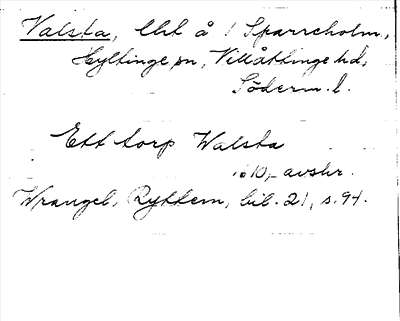 Valsta, lht å / Sparreholm,
Hyltinge sn, Villåttinge hd,
Söderm. l.
Ett torp Walsta
1610, avskr.
Wrangel, Ryttern, bil. 21, s. 94.